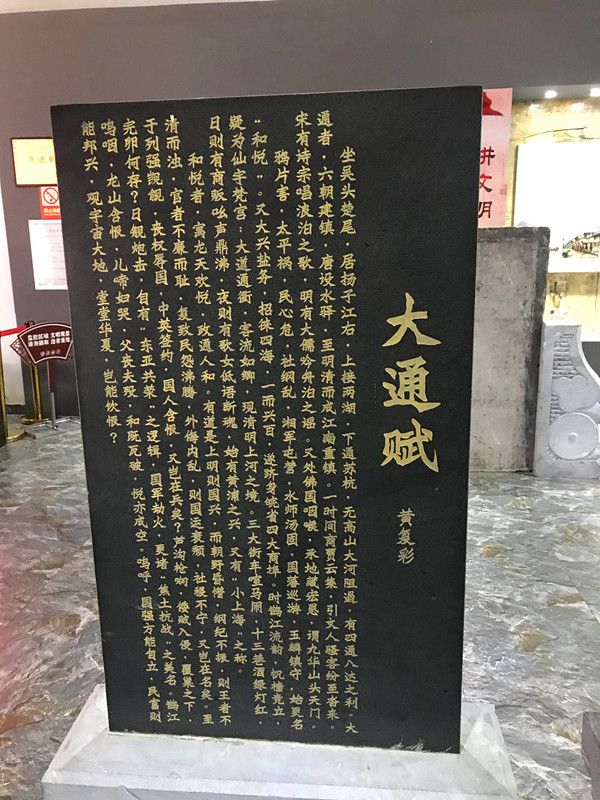 大通赋
黄复彩
坐吴头楚尾，居扬子江右，上接两湖，下通苏杭，无高山大河阻遏，有四通八达之利。大
通者，六朝建镇，唐设水驿，至明清而成江南重镇。一时间商贾云集，引文人骚客纷至沓来。
宋有诗宗唱浪泊之歌，明有大儒吟舟泊之谣。又处佛国咽喉，承地藏宏恩，谓九华山头天门。
鸦片害，太平祸，民心危，社纲乱，湘军屯营，水师汤固，国藩巡游，玉麟镇守，始更名
“和悦”。又大兴盐务，招徕四海，一而兴百，遂跻身皖省四大商埠。时鹊江流韵，帆樯竞立，
疑为仙宇梵宫；大道通衢，客流如鲫，现清明上河之境。三大街车喧马闹，十三巷酒绿灯红，
日则有商贩吆声鼎沸，夜则有歌女低语断魂，始有黄浦之兴，又有“小上海”之称。
和悦者，寓龙天欢悦，政通人和。有道是上明则国兴，而朝野昏懵，纲纪不振，则王者不
清而浊，官者不廉而耻，复致民怨沸腾，外侮内乱，则国运衰颓，社稷不宁，又岂在名矣。至
于列强觊觎，丧权辱国，中英签约，国人含恨，又岂在兵矣？芦沟枪响，倭贼入侵，覆巢之下，
完卵何存？日舰炮击，自有“东亚共荣”之逻辑，国军劫火，更诸“焦土抗战”之美名。鹊江
呜咽，龙山含恨，儿啼如哭，父丧夫殁，和既瓦破，悦亦成空。呜呼，国强方能自立，民富则
能邦兴，观宇宙大地，堂堂华夏，岂能饮恨？
讲文明
监控区域 文明观展
请勿翻越 违者重处